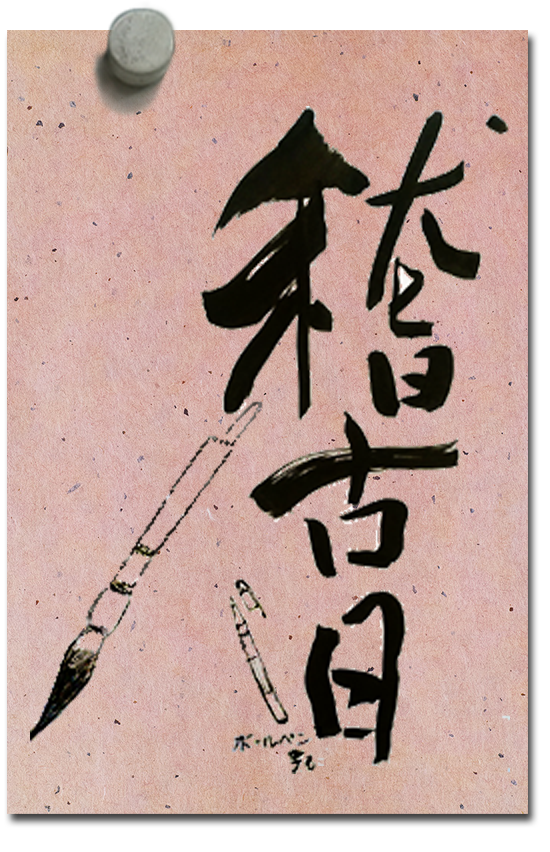 稽古日
ボールペン